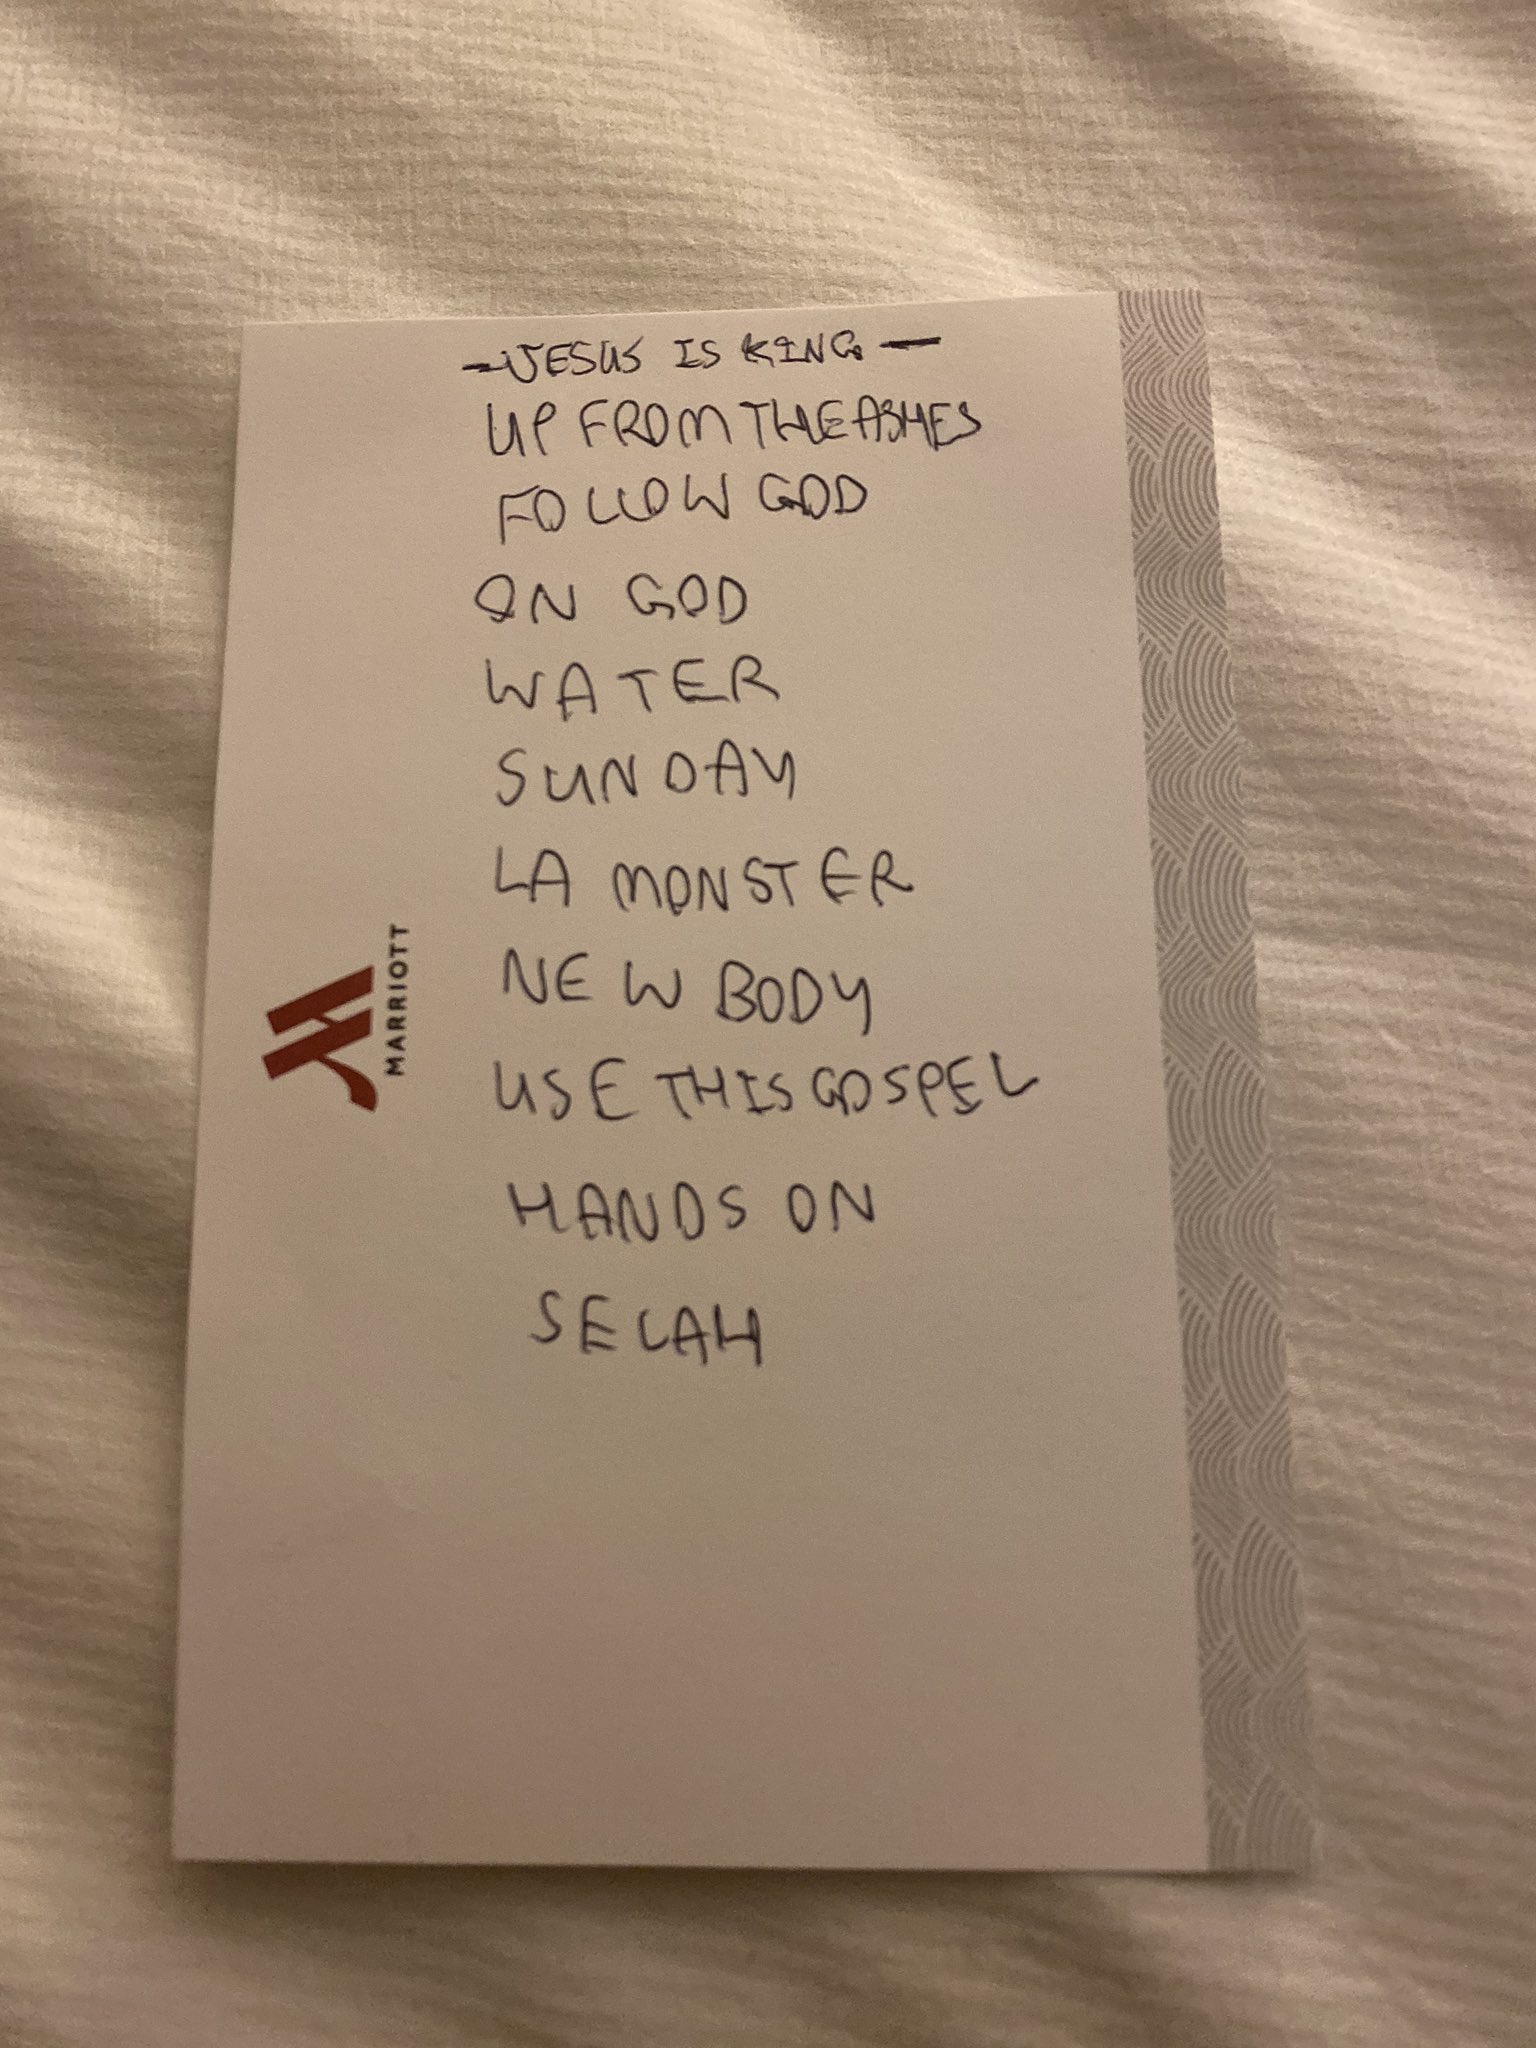 -JESUS IS KING-
UP FROM THE ASHES
FOLLOW GOD
ON GOD
WATER
SUNDAY
LA MONSTER
NEW BODY
USE THIS GOSPEL
HANDS ON
SELAH
MARRIOTT